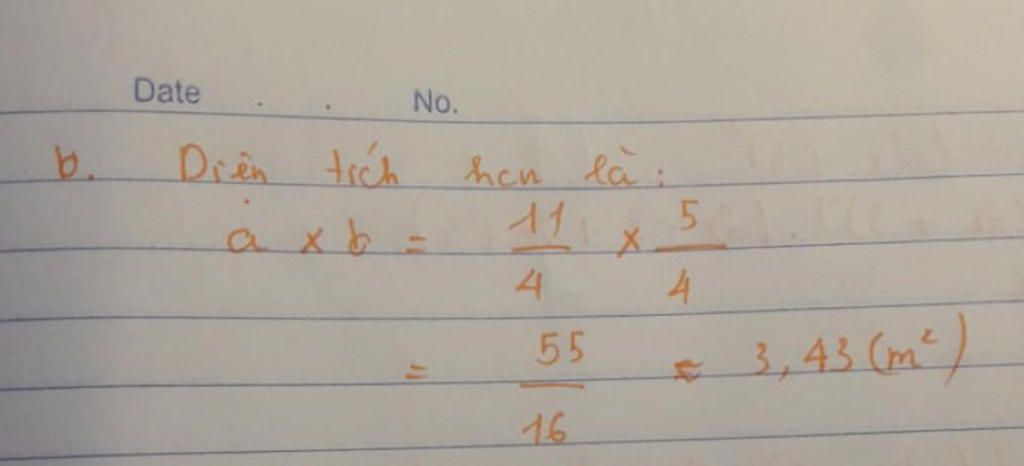 Date . . No.
b. Diện tích hcn là:
a × b = 11/4 × 5/4
= 55/16 ≈ 3,43 (m²)